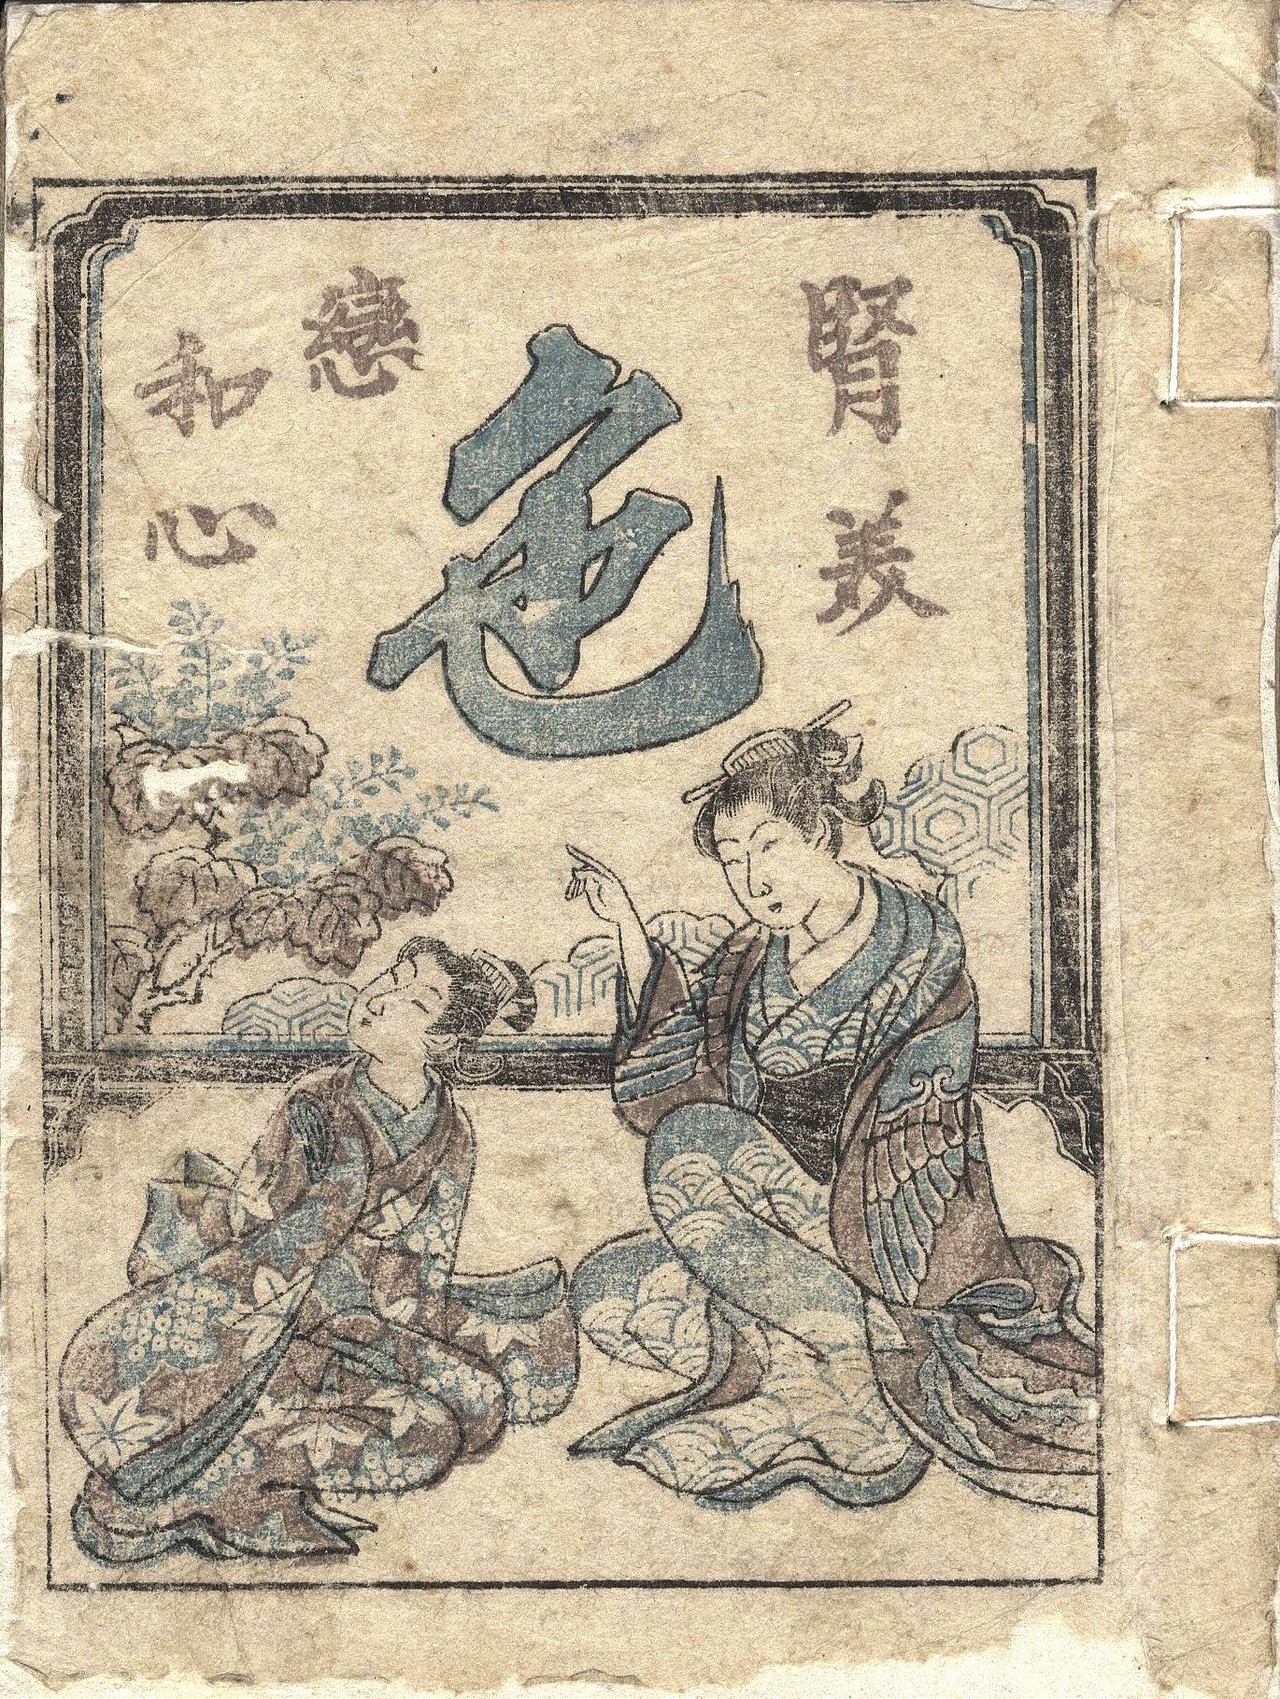 腎美
色
戀
和心